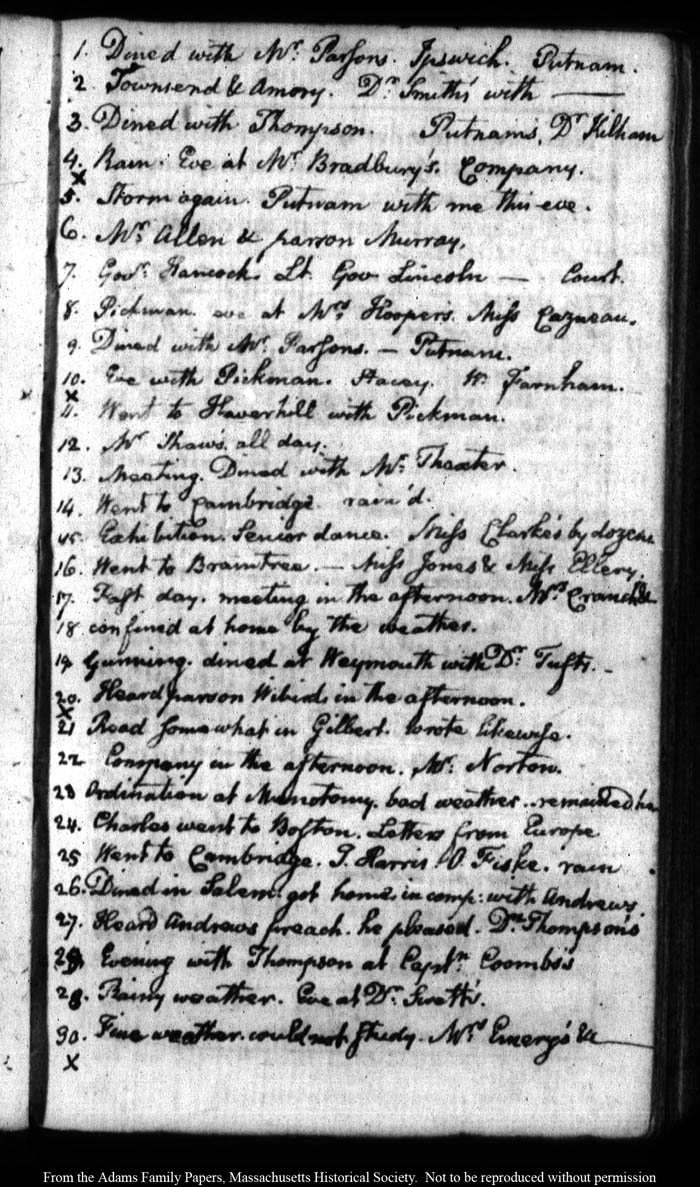 1. Dined with Mr. Parsons. Ipswich. Putnam.
2. Townsend & Amory. Dr. Smith's with ——
3. Dined with Thompson. Putnam's, Dr Kilham
4. Rain. Eve at Mr. Bradbury's. Company.
x
5. Storm again. Putnam with me this eve.
6. Mr. Allen & parson Murray.
7. Govr. Hancock. Lt. Gov Lincoln — Court.
8. Pickman. eve at Mrs Hooper's. Miss Cazneau.
9. Dined with Mr. Parsons. — Putnam.
10. Eve with Pickman. Stacey. W. Farnham.
x
11. Went to Haverhill with Pickman.
12. Mr Shaw's all day.
13. Meeting. Dined with Mr. Thaxter.
14. Went to Cambridge. rain'd.
15. Exhibition. Senior dance. Miss Clarke's by dozens
16. Went to Braintree. — Miss Jones & Miss Ellery.
17. Fast day. meeting in the afternoon. Mrs Cranch
18. confined at home by the weather.
19 Gunning. dined at Weymouth with Dr. Tufts. —
20. Heard parson Wibird, in the afternoon.
x
21 Read somewhat in Gilbert. wrote likewise.
22 Company in the afternoon. Mr. Norton.
23 Ordination at Menotomy. bad weather.. remained
24. Charles went to Boston. Letters from Europe
25 Went to Cambridge. J. Harris. O. Fiske. rain.
26. Dined in Salem: got home. in comp: with Andrews.
27. Heard Andrews preach. he pleased. Dr. Thompson's
28. Evening with Thompson at Captn. Coombs's
29. Rainy weather. Eve at Dr. Swett's.
30. Fine weather. could not study. Mrs Emery's &c ——
x
From the Adams Family Papers, Massachusetts Historical Society. Not to be reproduced without permission